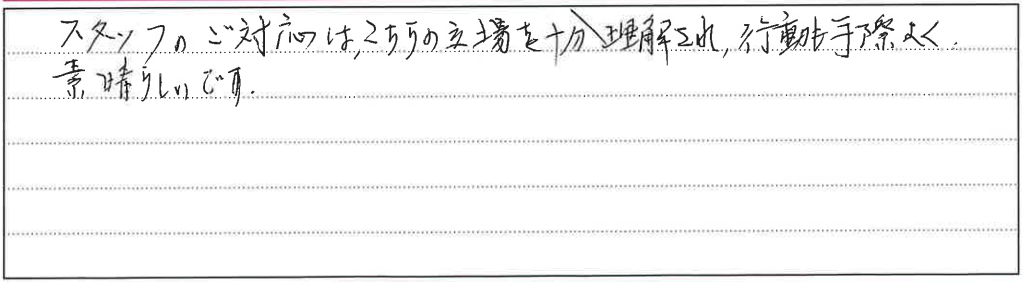 スタッフのご対応は,こちらの立場を十分理解され,行動も手際よく.
素晴らしいです.